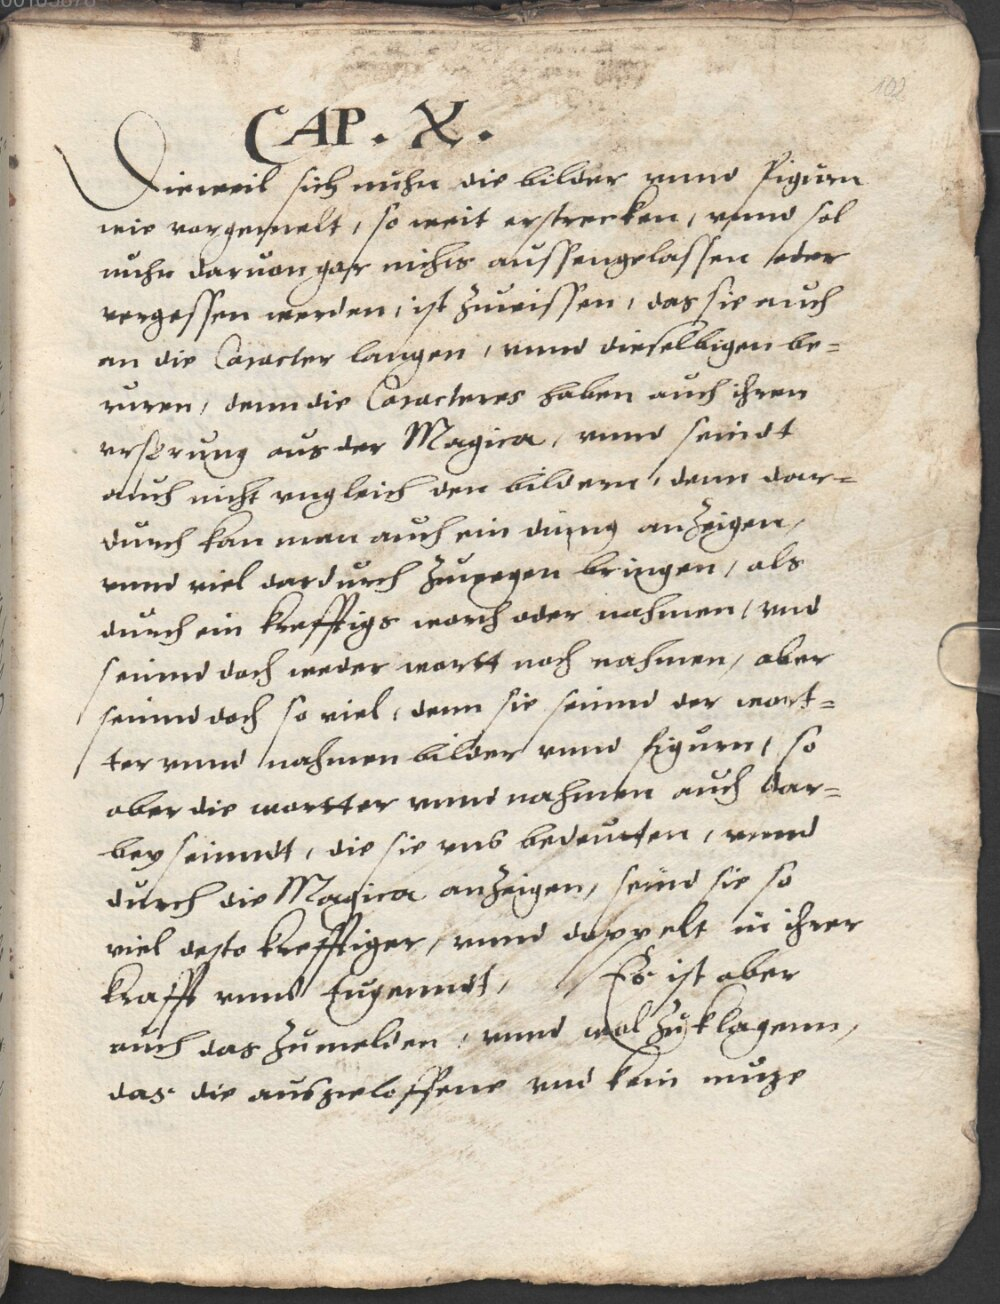 102
CAP. X.
Dieweil sich nuhn die bilder unnd Figurn
wie vorgemelt, so weit erstrecken, unnd sol
nuhr daruon gar nichts aussengelassen oder
vergessen werden, ist Zuwissen, das sie auch
an die Caracter langen, unnd dieselbigen be=
ruren, denn die Caracteres haben auch ihren
ursprung aus der Magica, unnd seindt
auch nicht ungleich den bildern, denn dar=
durch kan man auch ein ding anZeigen,
unnd viel dardurch Zuwegen bringen, als
durch ein krefftigs wordt oder nahmen, und
seinnd doch weder wortt noch nahmen, aber
seinnd doch so viel, denn sie seinnd der wort=
ter unnd nahmen bilder unnd figurn, so
aber die wortter unnd nahmen auch dar=
bey seinndt, die sie uns bedeutten, unnd
durch die Magica anZeigen, seind sie so
viel desto krefftiger, unnd doppelt in ihrer
krafft unnd tugenndt, Es ist aber
auch das Zumelden, unnd wol Zuklagenn,
das die und kein nuze